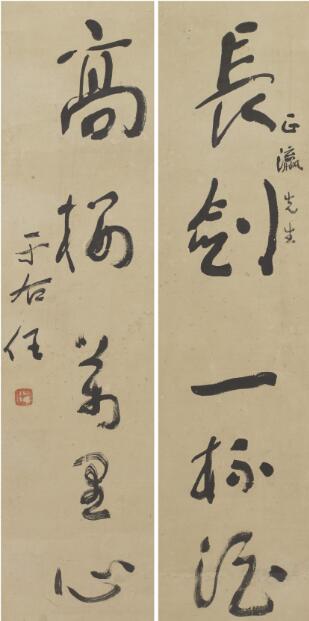 正瀛先生
長劍一杯酒
高樓萬里心
于右任